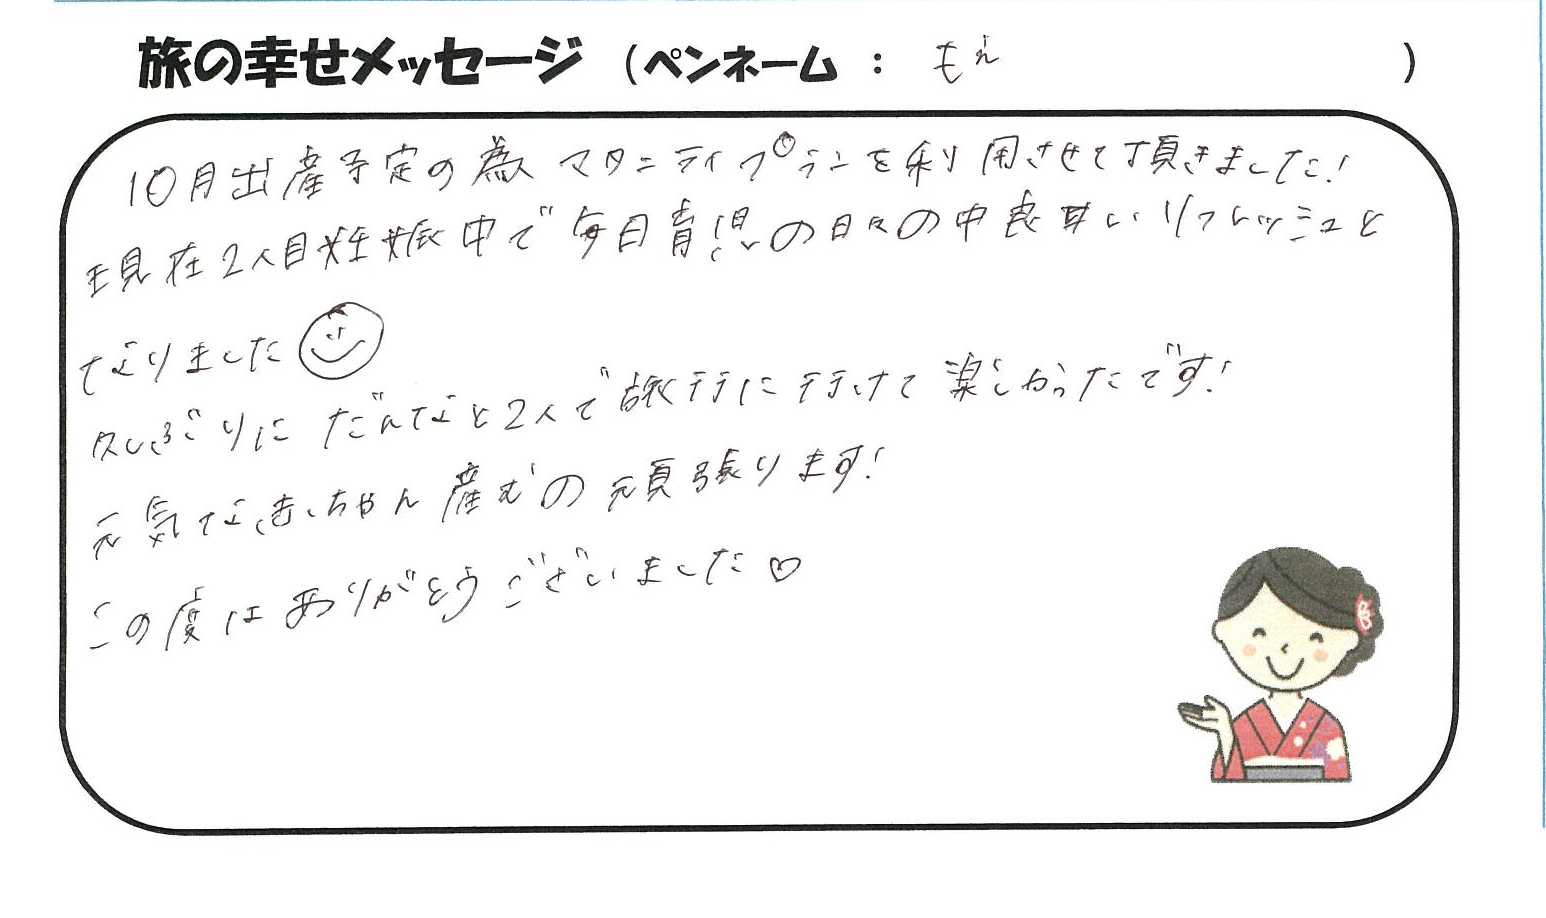 旅の幸せメッセージ (ペンネーム : もえ )
10月出産予定の為 マタニティプランを利用させて頂きました!
現在2人目妊娠中で毎日育児の日々の中良いリフレッシュと
なりました
久しぶりにだんなと2人で旅行に行けて楽しかったです!
元気な赤ちゃん産むの頑張ります!
この度はありがとうございました♡